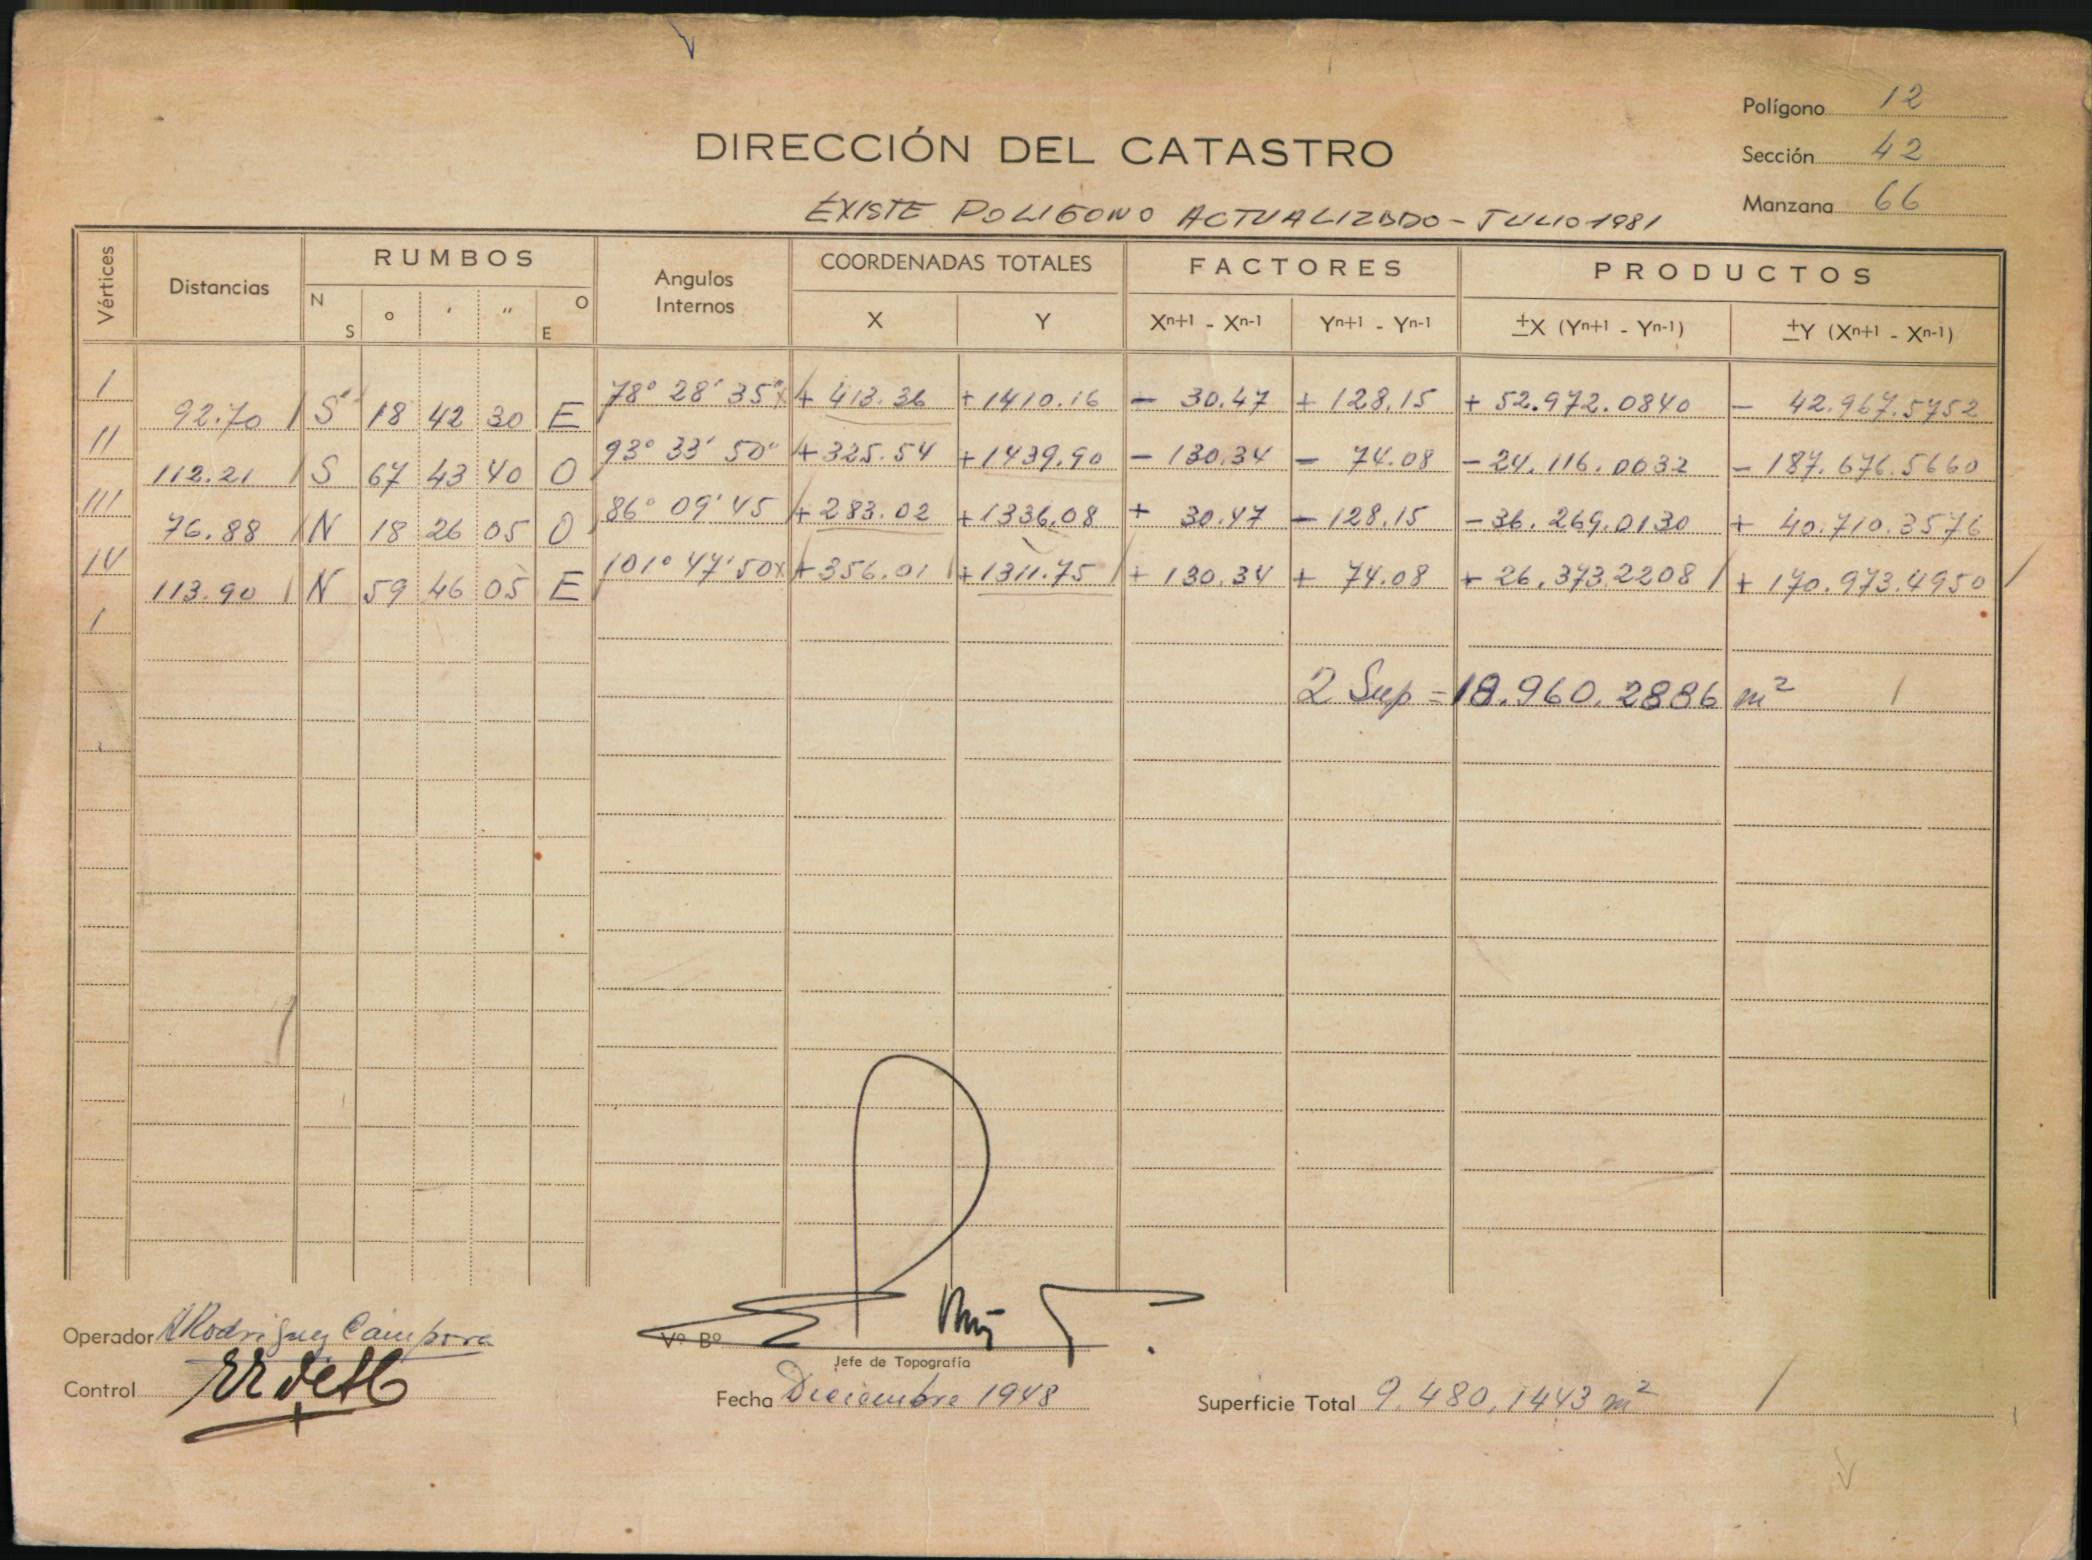 Polígono 12
DIRECCIÓN DEL CATASTRO
Sección 42
EXISTE POLIGONO ACTUALIZADO - JULIO 1981
Manzana 66
Vértices Distancias RUMBOS Angulos Internos COORDENADAS TOTALES FACTORES PRODUCTOS
N S ° ′ ″ O E X Y Xn+1 - Xn-1 Yn+1 - Yn-1 ±X (Yn+1 - Yn-1) ±Y (Xn+1 - Xn-1)
I 78° 28' 35" + 413.36 + 1410.16 - 30.47 + 128.15 + 52.972.0840 - 42.967.5752
92.70 S 18 42 30 E
II 93° 33' 50" + 325.54 + 1439.90 - 130.34 - 74.08 - 24.116.0032 - 187.676.5660
112.21 S 67 43 40 O
III 86° 09' 45 + 283.02 + 1336.08 + 30.47 - 128.15 - 36.269.0130 + 40.710.3576
76.88 N 18 26 05 O
IV 101° 47' 50 + 356.01 + 1311.75 + 130.34 + 74.08 + 26.373.2208 + 170.973.4950
113.90 N 59 46 05 E
I
2 Sup = 18.960.2886 m²
Operador A Rodriguez Campora
Vº Bº
Jefe de Topografía
Control
Fecha Diciembre 1948
Superficie Total 9.480,1443 m²